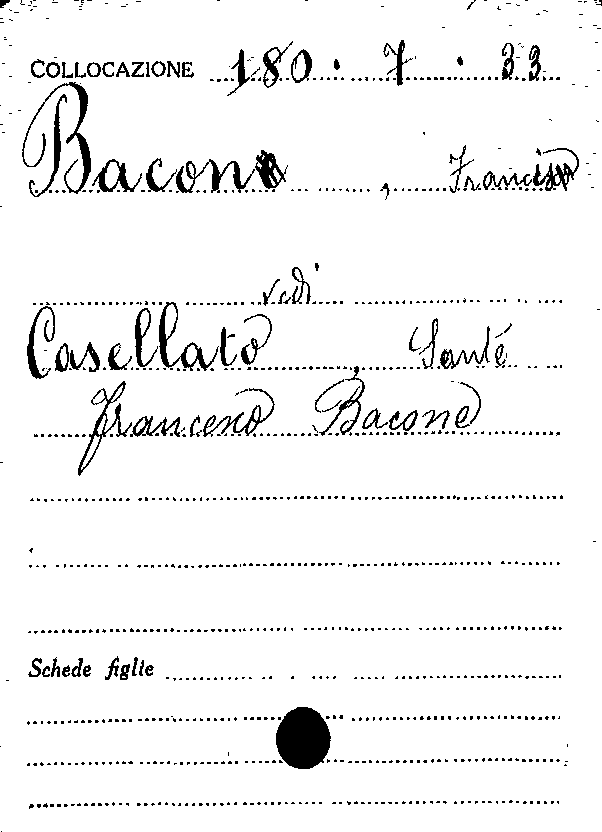 COLLOCAZIONE 180 . 7 . 33
Bacon , Francis
vedi
Casellato , Sante
Francesco Bacone
Schede figlie